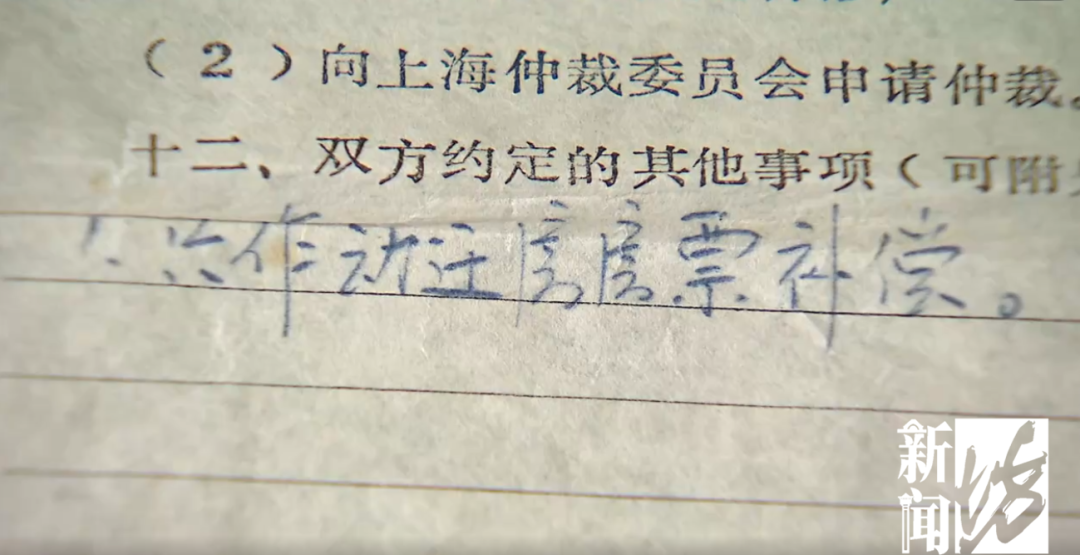 （2）向上海仲裁委员会申请仲裁。
十二、双方约定的其他事项（可附
1.只作动迁房房票补偿。
新闻坊